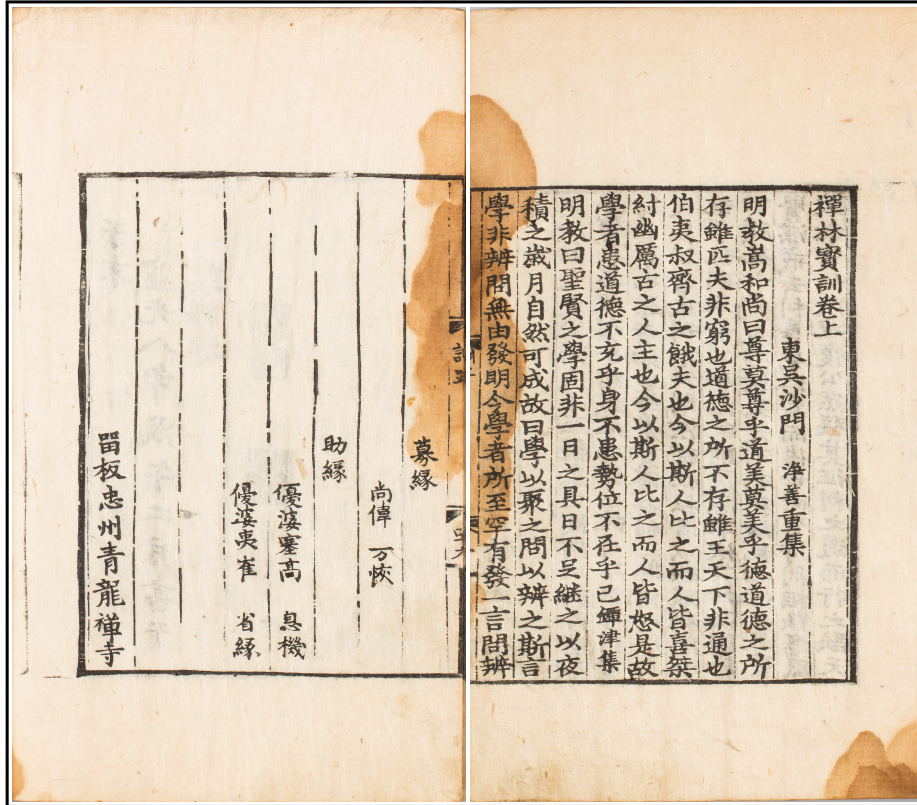 禪林寶訓卷上
東吳沙門 淨善重集
明教嵩和尚曰尊莫尊乎道美莫美乎德道德之所
存雖匹夫非窮也道德之所不存雖王天下非通也
伯夷叔齊古之餓夫也今以斯人比之而人皆喜桀
紂幽厲古之人主也今以斯人比之而人皆怒是故
學者患道德不充乎身不患勢位不在乎己鐔津集
明教曰聖賢之學固非一日之具日不足繼之以夜
積之歲月自然可成故曰學以聚之問以辨之斯言
學非辨問無由發明今學者所至罕有發一言問辨
募緣
尚偉 万恢
助緣
優婆塞高 息機
優婆夷崔 省緣
畱板忠州青龍禪寺